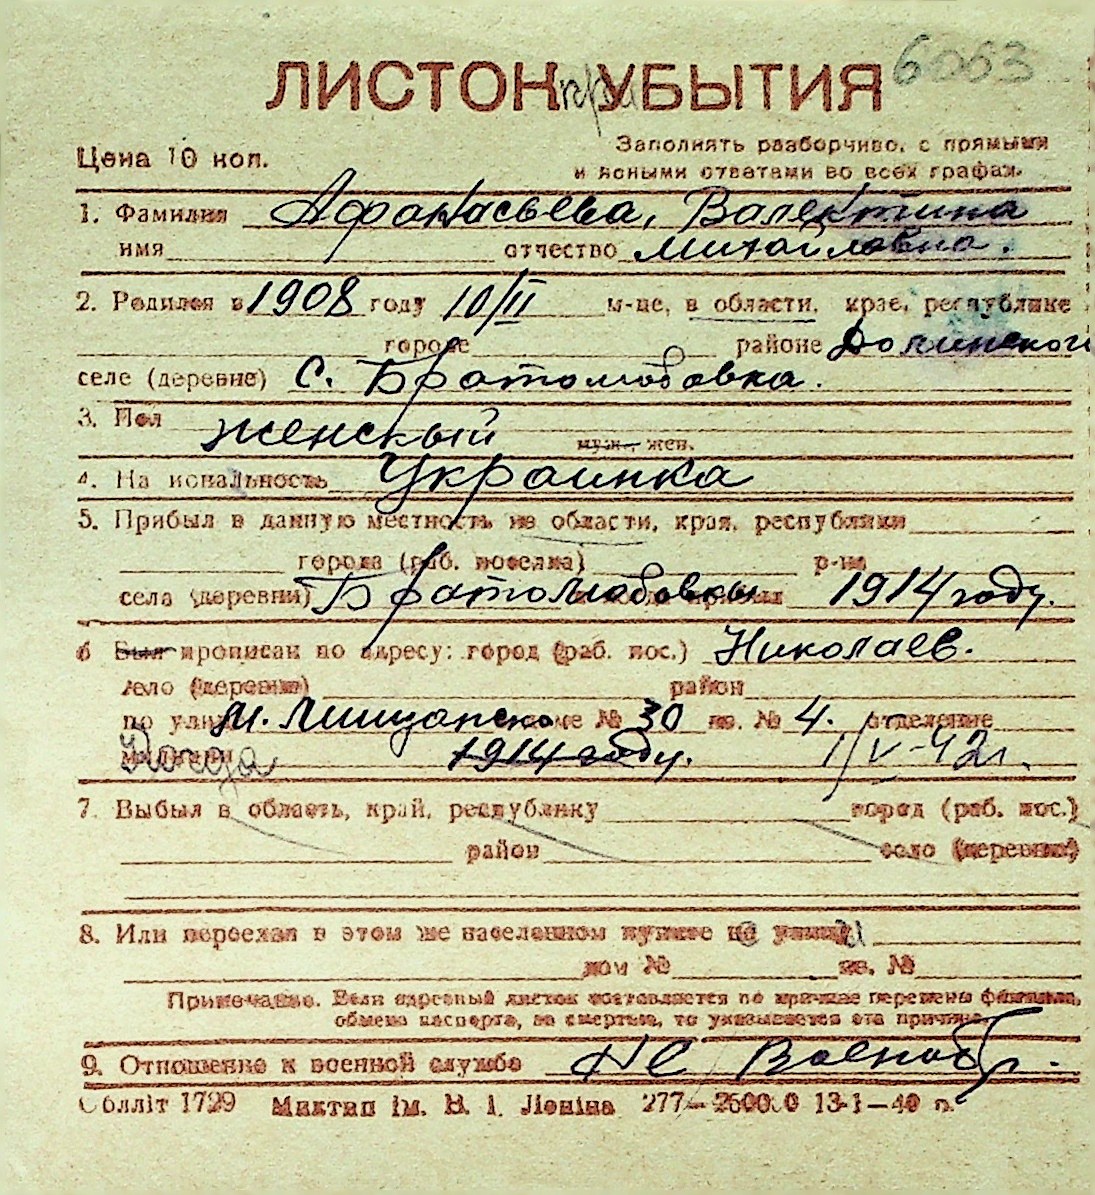 6063
ЛИСТОК при УБЫТИЯ
Цена 10 коп.
Заполнять разборчиво, с прямыми
и ясными ответами во всех графах.
1. Фамилия Афанасьева, Валентина
имя отчество Михайловна.
2. Родился в 1908 году 10/II м-це, в области, крае, республике
городе районе Долинской
селе (деревне) с. Братолюбовка.
3. Пол женский муж., жен.
4. Национальность Украинка
5. Прибыл в данную местность из области, края, республики
города (раб. поселка) р-на
села (деревни) Братолюбовки 1914 году.
6 Был прописан по адресу: город (раб. пос.) Николаев.
село (деревня) район
по улице М. Мищанско доме № 30 кв. № 4. отделение
милиции Когда 1914 году. 1/V-42г.
7. Выбыл в область, край, республику город (раб. пос.)
район село (деревню)
8. Или переехал в этом же населенном пункте на улицу
дом № кв. №
Примечание. Если адресный листок составляется по причине перемены фамилии,
обмена паспорта, за смертью, то указывается эта причина.
9. Отношение к военной службе не военнообр.
Облліт 1729 Миктип ім. В. І. Леніна 277— 260000 13-1—40 р.